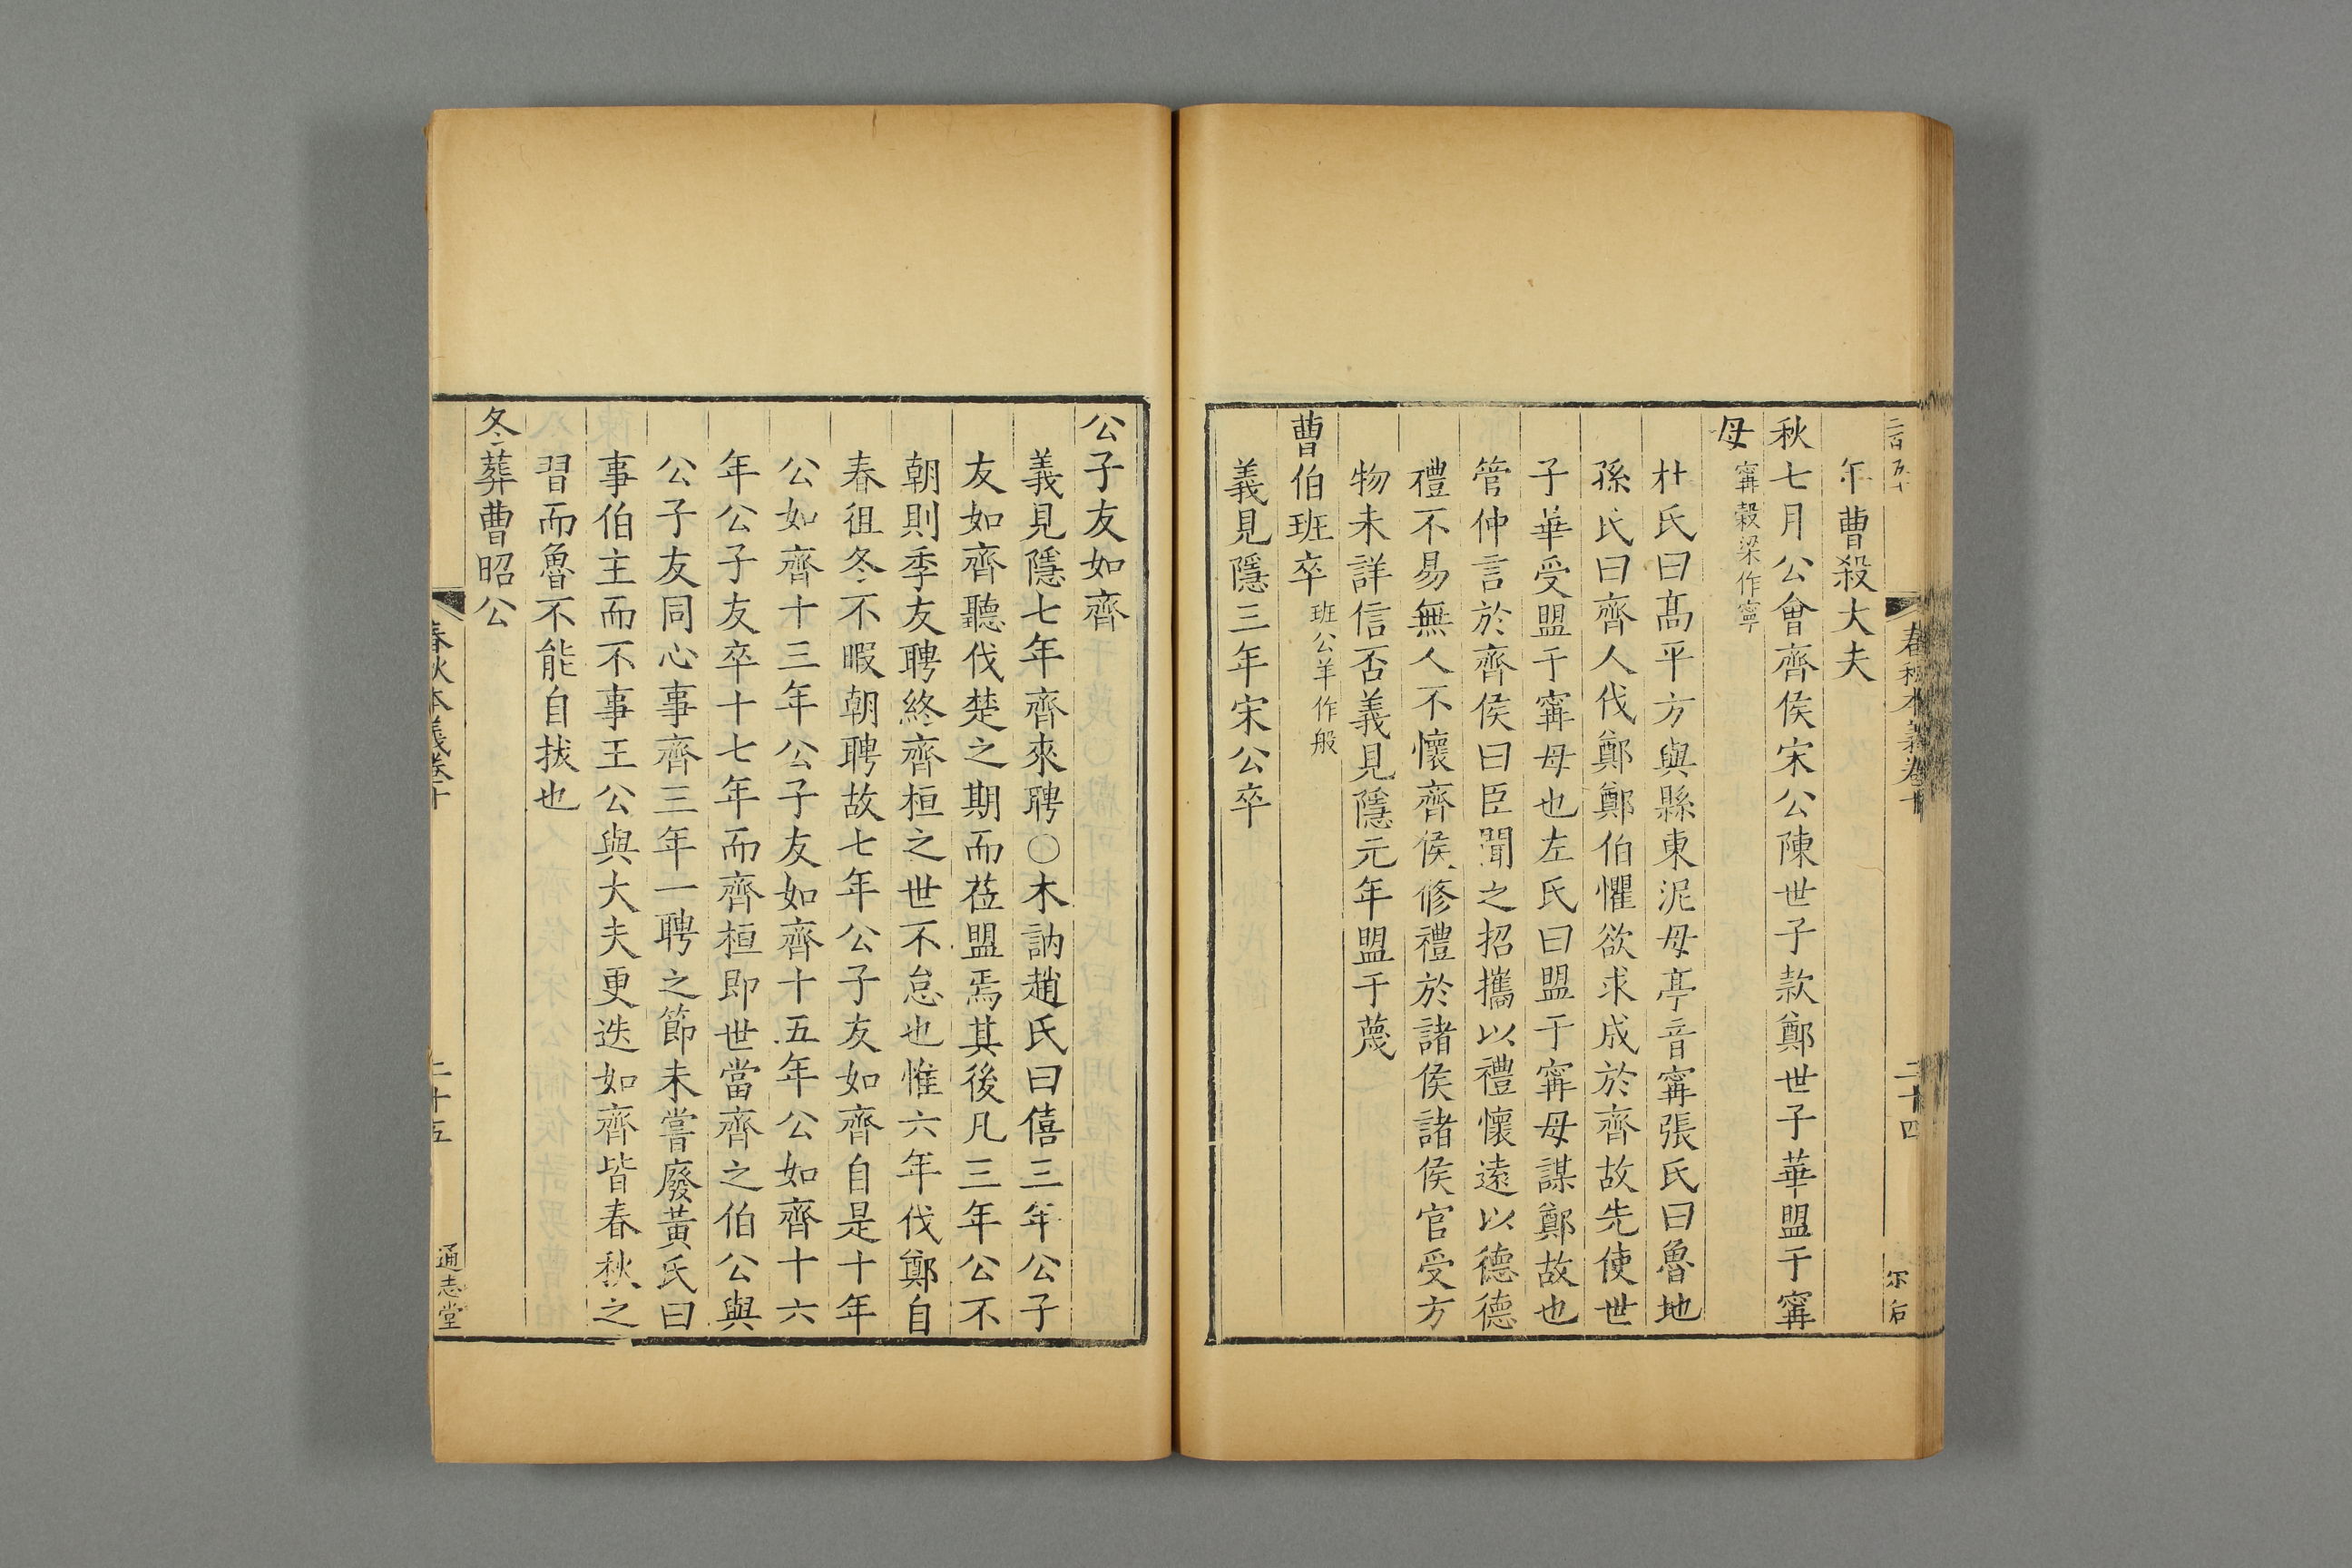 二百五十
春秋本義卷十
二十四
年曹殺大夫
秋七月公會齊侯宋公陳世子款鄭世子華盟于甯
母甯穀梁作寧
杜氏曰髙平方與縣東泥母亭音甯張氏曰魯地
孫氏曰齊人伐鄭鄭伯懼欲求成於齊故先使世
子華受盟于甯母也左氏曰盟于甯母謀鄭故也
管仲言於齊侯曰臣聞之招攜以禮懷逺以德德
禮不易無人不懷齊侯修禮於諸侯諸侯官受方
物未詳信否義見隱元年盟于蔑
曹伯班卒班公羊作般
義見隱三年宋公卒
公子友如齊
義見隱七年齊來聘○木訥趙氏曰僖三年公子
友如齊聽伐楚之期而莅盟焉其後凡三年公不
朝則季友聘終齊桓之世不怠也惟六年伐鄭自
春徂冬不暇朝聘故七年公子友如齊自是十年
公如齊十三年公子友如齊十五年公如齊十六
年公子友卒十七年而齊桓即世當齊之伯公與
公子友同心事齊三年一聘之節未嘗廢黃氏曰
事伯主而不事王公與大夫更迭如齊皆春秋之
習而魯不能自拔也
冬葬曹昭公
春秋本義卷十
二十五
通志堂